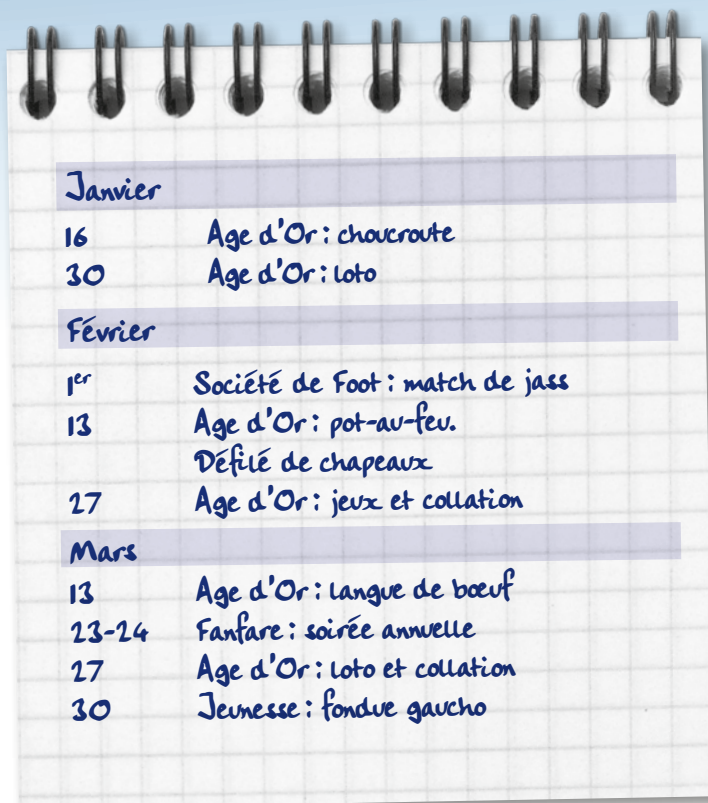 Janvier
16 Age d'Or : choucroute
30 Age d'Or : loto
Février
1er Société de Foot : match de jass
13 Age d'Or : pot-au-feu.
Défilé de chapeaux
27 Age d'Or : jeux et collation
Mars
13 Age d'Or : langue de bœuf
23-24 Fanfare : soirée annuelle
27 Age d'Or : loto et collation
30 Jeunesse : fondue gaucho